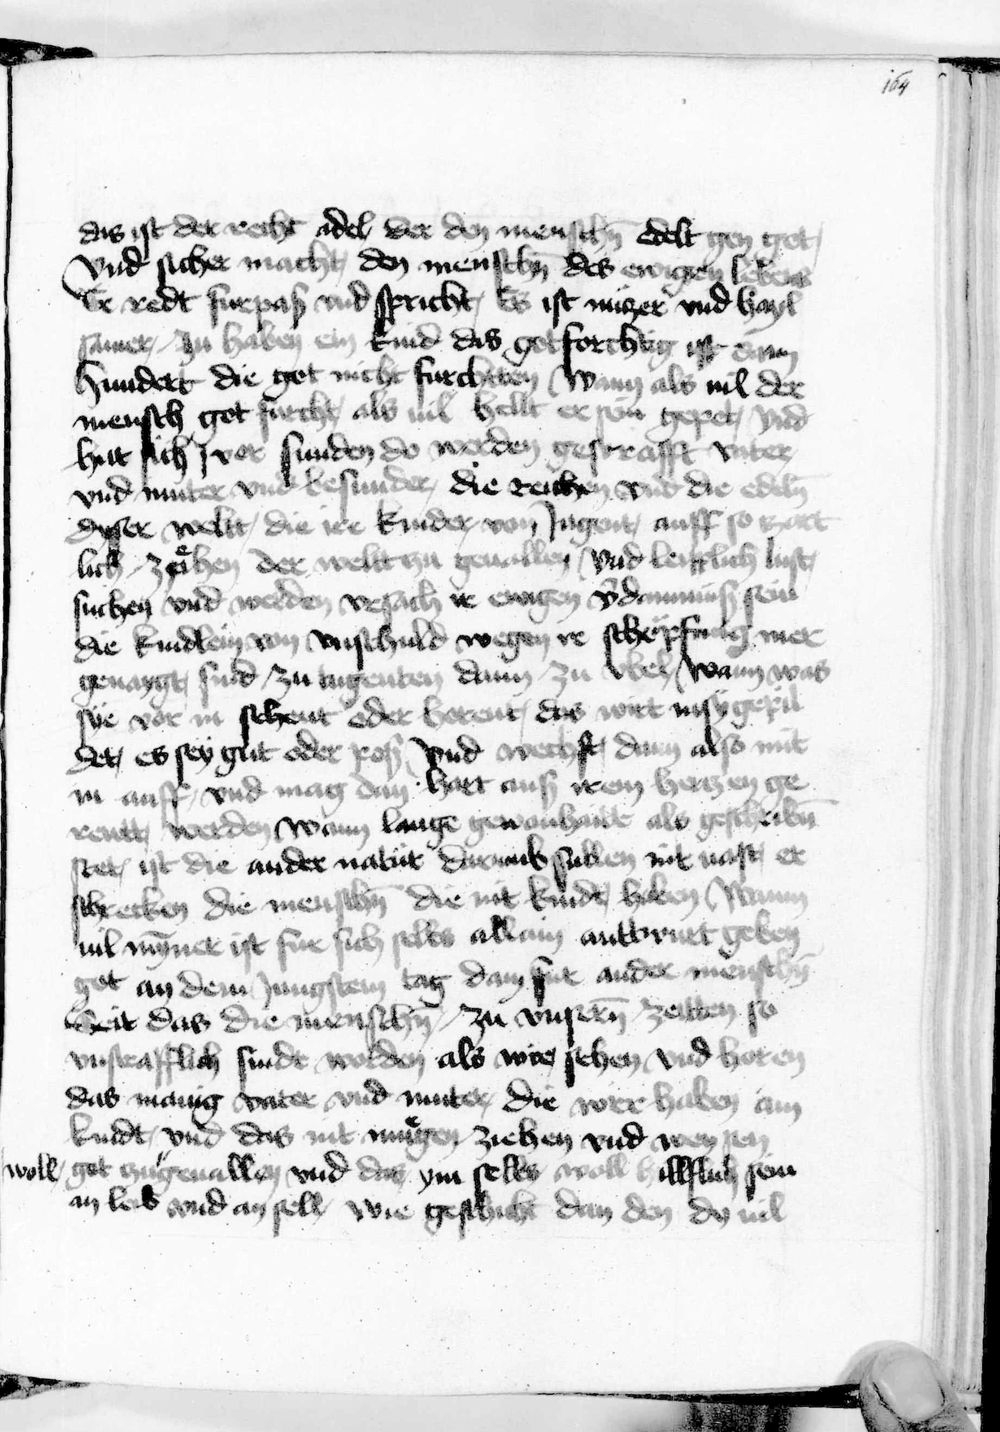 164
das ist der recht adel der den menschn̄ edelt gen got
Vnd sicher macht den menschn̄ des ewigen lebens
Er redt furpaß vnd spricht Es ist nüczer vnd hayl
samer zu haben ein kind das gotforchtig ist dann
hundert die got nicht furchten Wann als vil der
mensch got furcht als vil hellt er sein gepet vnd
hut sich vor sunden do werden gestrafft vater
vnd muter vnd besunder die reichen vnd die edeln̄
dyser weltt die ire kinder von Jugent auff so zart
lich ziehen der weltt zu geuallen vnd leiplich lust
suchen vnd werden vrsach ir ewigen v̄damnuß sein
die kindlein von vnschuld wegen ir schöpfung mer
genaygt sind zu tugenten dann zu vbel wann was
sye vor in sehent oder horent das wirt in sy gepil
det es sey gut oder poß vnd wechst dann also mit
in auff vnd mag dan hart auß irem herczen ge
reutt werden Wann lange gewonhaidt als geschribn̄
stet ist die ander natur darumb sullen nit vast er
schrecken die menschn̄ die nit kindt haben Wann
vil mynner ist fur sich selbs allain anttwurt geben
got an dem Jungstem tag dann fur ander menschn̄
Seit das die menschn̄ zu vnsern̄ zeitten so
vnstrafflich sindt worden als wir sehen vnd horen
das manig vater vnd muter die vor haben ain
kindt vnd das nit mugen ziehen vnd weysen
woll got zu geuallen vnd das ym selbs woll hillflich sein
an leib vnd an sell wie geschicht dan den do vil